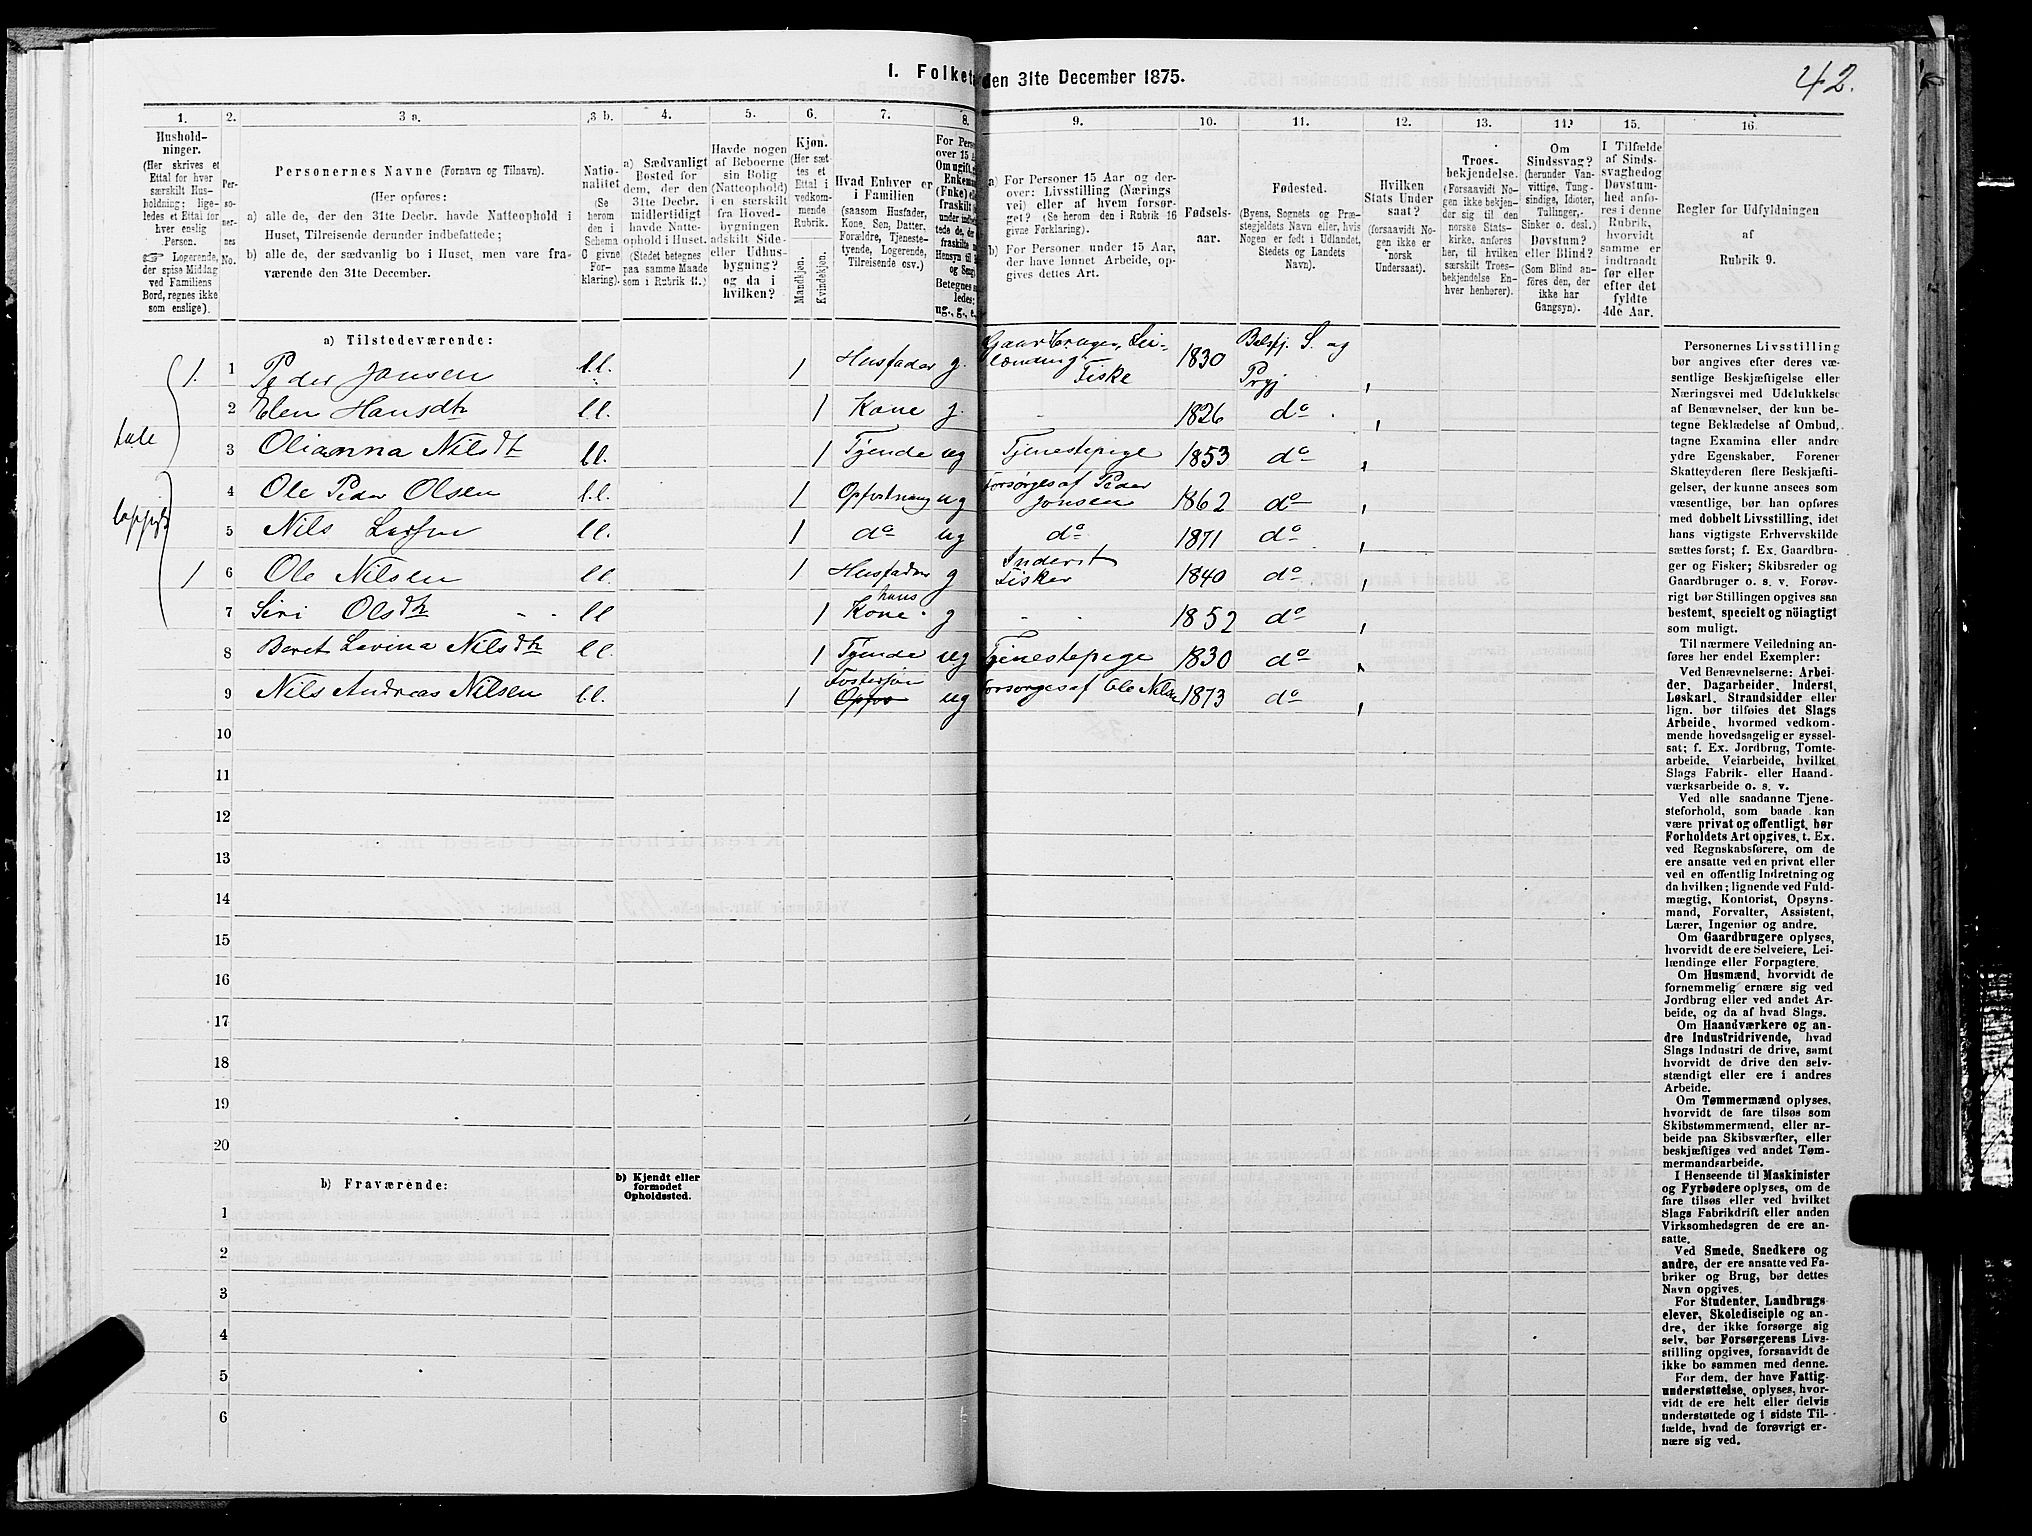 1. Folketæ den 31te December 1875.
42.
1.
2.
3 a.
3 b.
4.
5.
6.
7.
8.
9.
10.
11.
12.
13.
14.
15.
16.
Hushold-
ninger.
(Her skrives et
Ettal for hver
særskilt Hus-
holdning; lige-
ledes et Ettal for
hver enslig
Person.
☞ Logerende,
der spise Middag
ved Familiens
Bord, regnes ikke
som enslige).
Per-
so-
ner-
nes
No.
Personernes Navne (Fornavn og Tilnavn).
(Her opføres:
a) alle de, der den 31te Decbr. havde Natteophold i
Huset, Tilreisende derunder indbefattede;
b) alle de, der sædvanlig bo i Huset, men vare fra-
værende den 31te December.
Natio-
nalitet
(Se
herom
den i
Schema
C givne
For-
klaring).
a) Sædvanligt
Bosted for
dem, der den
31te Decbr.
midlertidigt
havde Natte-
ophold i Huset.
(Stedet betegnes
paa samme Maade
som i Rubrik 11.)
Havde nogen
af Beboerne
sin Bolig
(Natteophold)
i en særskilt
fra Hoved-
bygningen
adskilt Side-
eller Udhus-
bygning?
og da i
hvilken?
Kjøn.
(Her sæt-
tes et
Ettal i
vedkom-
mende
Rubrik.
Mandkjøn.
Kvindekjøn.
Hvad Enhver er
i Familien
(saasom Husfader,
Kone, Søn, Datter,
Forældre, Tjeneste-
tyende, Logerende,
Tilreisende osv.)
For Perso
over 15 A
Om ugift, g
Enkeman
(Enke) ell
fraskilt
under indbe
tede de, de
fraskilte
Hensyn til
og Seng
Betegnes s
ledes:
ug., g., e.
a) For Personer 15 Aar og der-
over: Livsstilling (Nærings
vei) eller af hvem forsør-
get? (Se herom den i Rubrik 16
givne Forklaring).
b) For Personer under 15 Aar,
der have lønnet Arbeide, op-
gives dettes Art.
Fødsels-
aar.
Fødested.
(Byens, Sognets og Præ-
stegjeldets Navn eller, hvis
Nogen er født i Udlandet,
Stedets og Landets
Navn).
Hvilken
Stats Under
saat?
(forsaavidt No-
gen ikke er
norsk
Undersaat).
Troes-
bekjendelse.
(Forsaavidt No-
gen ikke bekjen-
der sig til den
norske Stats-
kirke, anføres
her, til hvilken
særskilt Troes-
bekjendelse En-
hver henhører).
Om
Sindssvag?
(herunder Van-
vittige, Tung-
sindige, Idioter,
Tullinger,
Sinker o. desl.)
Døvstum?
eller Blind?
(Som Blind an-
føres den, der
ikke har
Gangsyn).
I Tilfælde
af Sinds-
svaghed og
Døvstum-
hed anfø-
res i denne
Rubrik,
hvorvidt
samme er
indtraadt
før eller
efter det
fyldte
4de Aar.
Regler for Udfyldningen
af
Rubrik 9.
a) Tilstedeværende:
1. 1 Peder Jonsen l.l. 1 Husfader g. Gaardbruger, Lei-
lænding Fiske 1830 Balsfj. S. og
Prgj
2 Elen Hansdtr l.l. 1 Kone g. 1826 do
tale
3 Olianna Nilsdtr l.l. 1 Tyende ug Tjenestepige 1853 do
4 Ole Peder Olsen l.l. 1 Opfostring ug Forsørges af Peder
Jonsen 1862 do
lappisk
5 Nils Larsen l.l. 1 do ug do 1871 do
1 6 Ole Nilsen l.l. 1 Husfader g Inderst
Fisker 1840 do
7 Siri Olsdtr l.l 1 hans
Kone g 1852 do
8 Beret Lovina Nilsdtr l.l. 1 Tyende ug Tjenestepige 1830 do
9 Nils Andreas Nilsen l.l. 1 Fostersøn
Opfos ug Forsørges af Ole Nilsen 1873 do
10
11
12
13
14
15
16
17
18
19
20
b) Fraværende:
b) Kjendt eller
formodet
Opholdssted.
1
2
3
4
5
6
Personernes Livsstilling
bør angives efter deres væ-
sentlige Beskjæftigelse eller
Næringsvei med Udelukkelse
af Benævnelser, der kun be-
tegne Beklædelse af Ombud,
tagne Examina eller andre
ydre Egenskaber. Forener
Skatteyderen flere Beskjæfti-
gelser, der kunne ansees som
væsentlige, bør han opføres
med dobbelt Livsstilling, idet
hans vigtigste Erhvervskilde
sættes først; f. Ex. Gaardbru-
ger og Fisker; Skibsreder og
Gaardbruger o. s. v. Forøv-
rigt bør Stillingen opgives saa
bestemt, specielt og nøiagtigt
som muligt.
Til nærmere Veiledning an-
føres her endel Exempler:
Ved Benævnelserne: Arbei-
der, Dagarbeider, Inderst,
Løskarl, Strandsidder eller
lign. bør tilføies det Slags
Arbeide, hvormed vedkom-
mende hovedsagelig er syssel-
sat; f. Ex. Jordbrug, Tomte-
arbeide, Veiarbeide, hvilket
Slags Fabrik- eller Haand-
værksarbeide o. s. v.
Ved alle saadanne Tjene-
steforhold, som baade kan
være privat og offentligt, bør
Forholdets Art opgives, t. Ex.
ved Regnskabsførere, om de
ere ansatte ved en privat eller
ved en offentlig Indretning og
da hvilken; lignende ved Fuld-
mægtig, Kontorist, Opsyns-
mand, Forvalter, Assistent,
Lærer, Ingeniør og andre.
Om Gaardbrugere oplyses,
hvorvidt de ere Selveiere, Lei-
lændinge eller Forpagtere.
Om Husmænd, hvorvidt de
fornemmelig ernære sig ved
Jordbrug eller ved andet Ar-
beide, og da af hvad Slags.
Om Haandværkere og an-
dre Industridrivende, hvad
Slags Industri de drive, samt
hvorvidt de drive den selv-
stændigt eller ere i andres
Arbeide.
Om Tømmermænd oplyses,
hvorvidt de fare tilsøs som
Skibstømmermænd, eller ar-
beide paa Skibsværfter, eller
beskjæftiges ved andet Tøm-
mermandsarbeide.
I Henseende til Maskinister
og Fyrbødere oplyses, om de
fare tilsøs eller ved hvilket
Slags Fabrikdrift eller anden
Virksomhedsgren de ere an-
satte.
Ved Smede, Snedkere og
andre, der ere ansatte ved Fa-
briker og Brug, bør dettes
Navn opgives.
For Studenter, Landbrugs-
elever, Skoledisciple og an-
dre, der ikke forsørge sig
selv, bør Forsørgerens Livs-
stilling opgives, forsaavidt de
ikke bo sammen med denne.
For dem, der have Fattig-
understøttelse, oplyses, hvor-
vidt de ere helt eller delvis
understøttede og i sidste Til-
fælde, hvad de forøvrigt er-
nære sig ved.